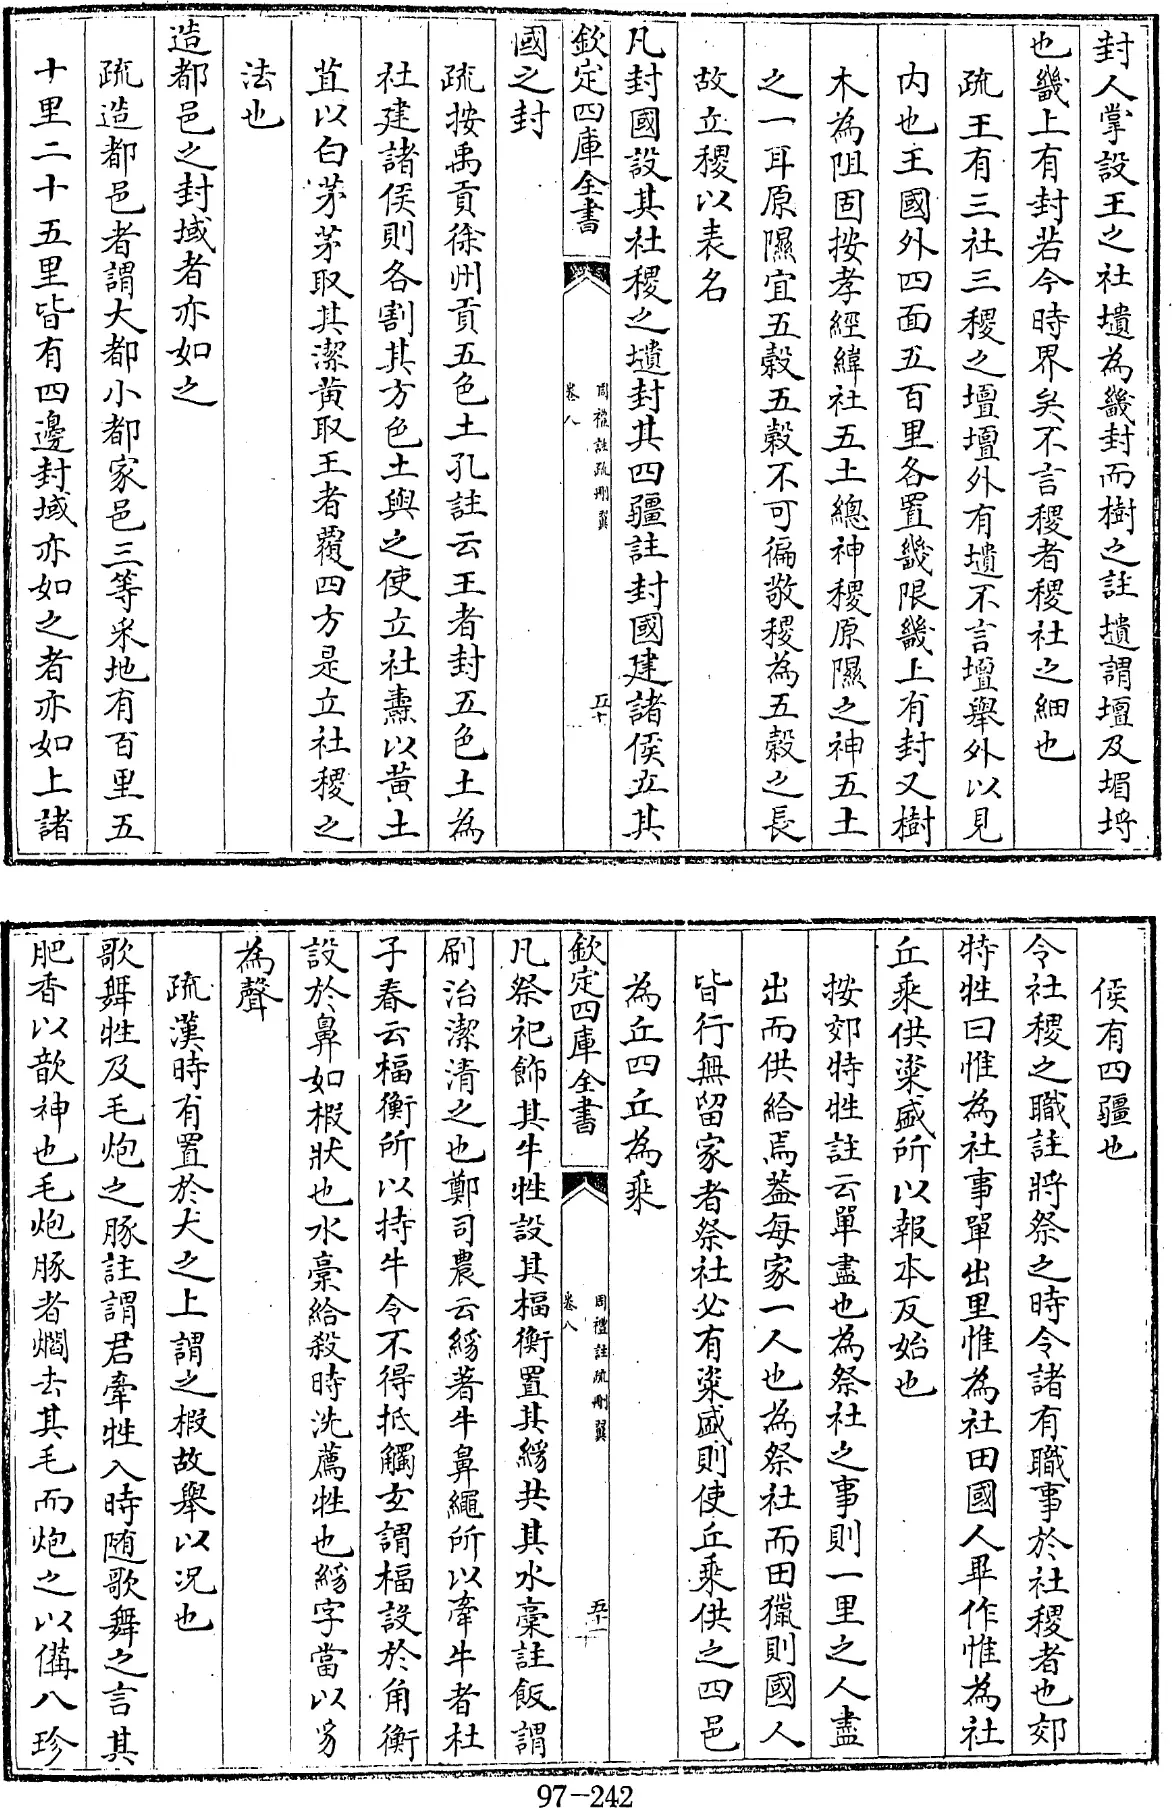 封人掌設王之社壝為畿封而樹之註壝謂壇及堳埒
也畿上有封若今時界矣不言稷者稷社之細也
疏王有三社三稷之壇壇外有壝不言壇舉外以見
内也王國外四面五百里各置畿限畿上有封又樹
木為阻固按孝經緯社五土總神稷原隰之神五土
之一耳原隰宜五榖五榖不可徧敬稷為五榖之長
故立稷以表名
凡封國設其社稷之壝封其四疆註封國建諸侯立其
欽定四庫全書
周禮註疏刪翼
卷八
五十
國之封
疏按禹貢徐州貢五色土孔註云王者封五色土為
社建諸侯則各割其方色土與之使立社燾以黄土
苴以白茅茅取其潔黄取王者覆四方是立社稷之
法也
造都邑之封域者亦如之
疏造都邑者謂大都小都家邑三等采地有百里五
十里二十五里皆有四邊封域亦如之者亦如上諸
侯有四疆也
令社稷之職註將祭之時令諸有職事於社稷者也郊
特牲曰惟為社事單出里惟為社田國人畢作惟為社
丘乘供粢盛所以報本反始也
按郊特牲註云單盡也為祭社之事則一里之人盡
出而供給焉葢每家一人也為祭社而田獵則國人
皆行無留家者祭社必有粢盛則使丘乘供之四邑
為丘四丘為乘
欽定四庫全書
周禮註疏刪翼
卷八
五十一
凡祭祀飾其牛牲設其楅衡置其絼共其水槀註飯謂
刷治潔清之也鄭司農云絼著牛鼻繩所以牽牛者杜
子春云楅衡所以持牛令不得抵觸玄謂楅設於角衡
設於鼻如椵狀也水槀給殺時洗薦牲也絼字當以豸
為聲
疏漢時有置於犬之上謂之椵故舉以况也
歌舞牲及毛炮之豚註謂君牽牲入時随歌舞之言其
肥香以歆神也毛炮豚者爓去其毛而炮之以備八珍
97-242